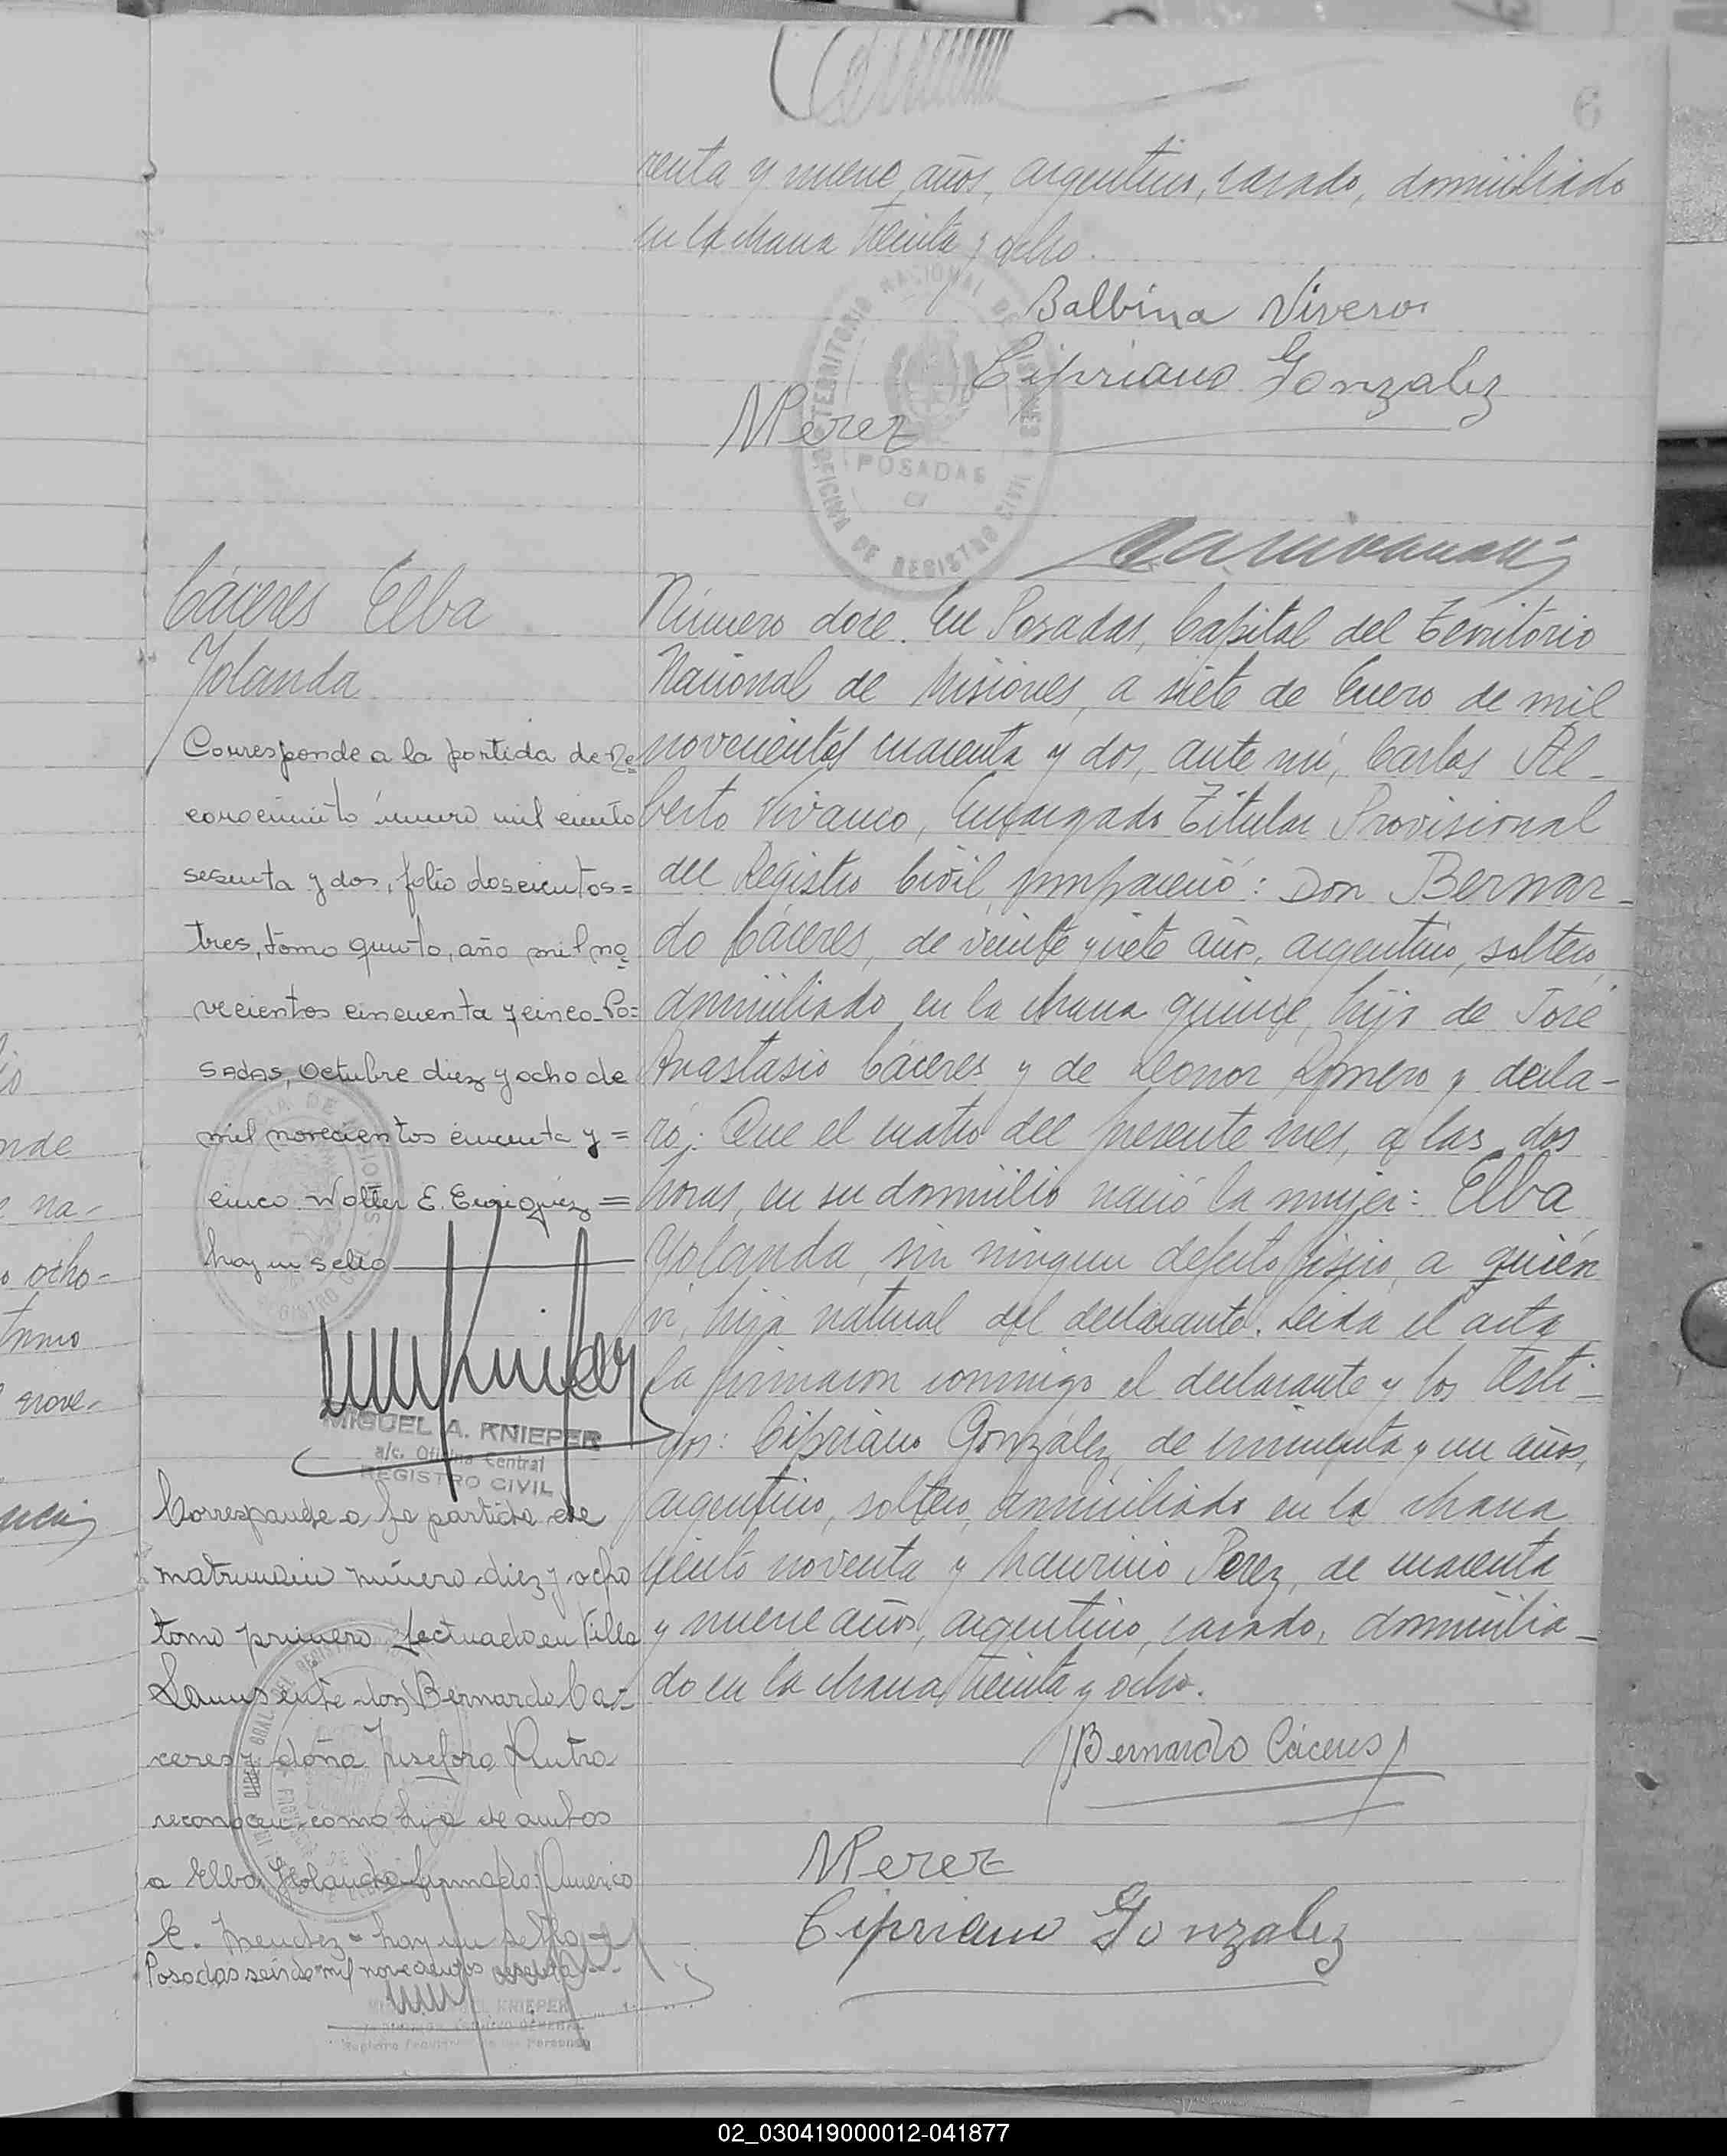 6
renta y nueve años, argentino, casado, domiciliado
en la chacra treinta y ocho.
Balbina Viveros
Cipriano Gonzalez
MPerez
TERRITORIO NACIONAL DE MISIONES
POSADAS
OFICINA DE REGISTRO CIVIL
Cáceres Elba
Yolanda
Número doce. En Posadas, Capital del Territorio
Nacional de Misiones, a siete de Enero de mil
novecientos cuarenta y dos, ante mí, Carlos Al-
berto Vivanco, Encargado Titular Provisional
del Registro Civil, compareció: Don Bernar-
do Cáceres, de veinte y siete años, argentino, soltero,
domiciliado en la chacra quince, hijo de José
Anastasio Cáceres y de Leonor Romero y decla-
ró: Que el cuatro del presente mes, a las dos
horas, en su domicilio nació la mujer: Elba
Yolanda, sin ningun defecto físico, a quién
ví, hija natural del declarante. Leida el acta
la firmaron conmigo el declarante y los testi-
gos: Cipriano González, de cincuenta y un años,
argentino, soltero, domiciliado en la chacra
ciento noventa y Mauricio Perez, de cuarenta
y nueve años, argentino, casado, domicilia-
do en la chacra treinta y ocho.
Bernardo Cáceres
MPerez
Cipriano Gonzalez
Corresponde a la partida de Re=
conocimiento número mil ciento
sesenta y dos, folio doscientos=
tres, tomo quinto, año mil no=
vecientos cincuenta y cinco-Po=
sadas, Octubre diez y ocho de
mil novecientos cincuenta y =
cinco. Walter E. =
hay un sello
MIGUEL A. KNIEPER
a/c. Oficina Central
REGISTRO CIVIL
Corresponde a la partida de
matrimonio número diez y ocho
tomo primero efectuado en Villa
Lanus entre don Bernardo Ca-
ceres y doña
reconocen como hija de ambos
a Elba Yolanda firmado: Americo
E. Mendez - hay un sello
Posadas mil novecientos
KNIEPER
ARCHIVO GENERAL
nde
e na-
o ocho=
tomo
nove-
02_030419000012-041877